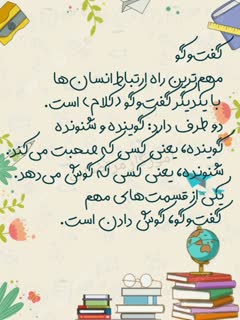 گفت‌وگو
مهم‌ترین راه ارتباط انسان‌ها
با یکدیگر گفت‌وگو (کلام) است.
دو طرف دارد: گوینده و شنونده
گوینده، یعنی کسی که صحبت می‌کند.
شنونده، یعنی کسی که گوش می‌دهد.
یکی از قسمت‌های مهم
گفت‌وگو، گوش دادن است.